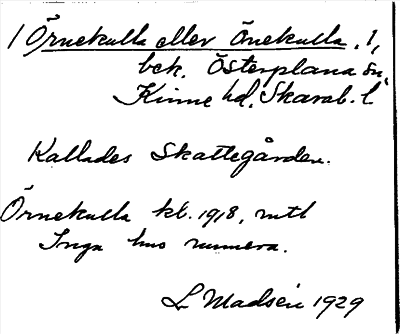 1 Örnekulla eller Önekulla, 1,
bek. Österplana sn,
Kinne hd, Skarab. l
Kallades Skattegården.
Örnekulla kl. 1918, mtl
Inga hus numera.
L. Madsén 1929